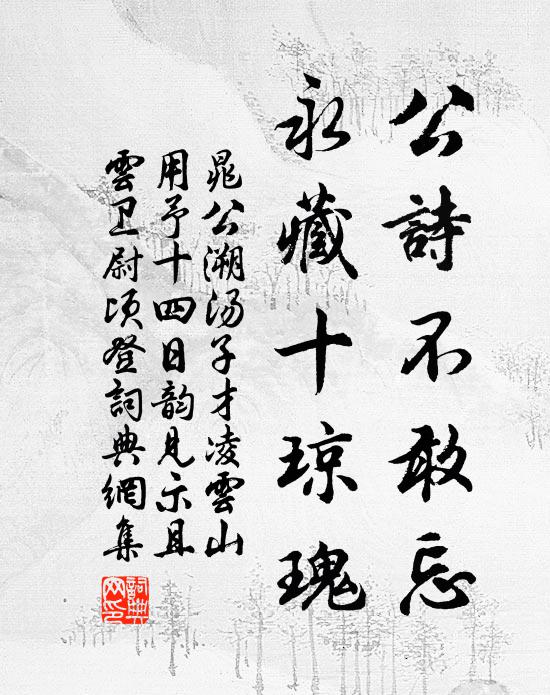 公詩不敢忘
永藏十琼瑰
晁公溯汤子才凌雲山
用予十四日韵見示且
雲卫尉顷登詞典網集
詞典网印